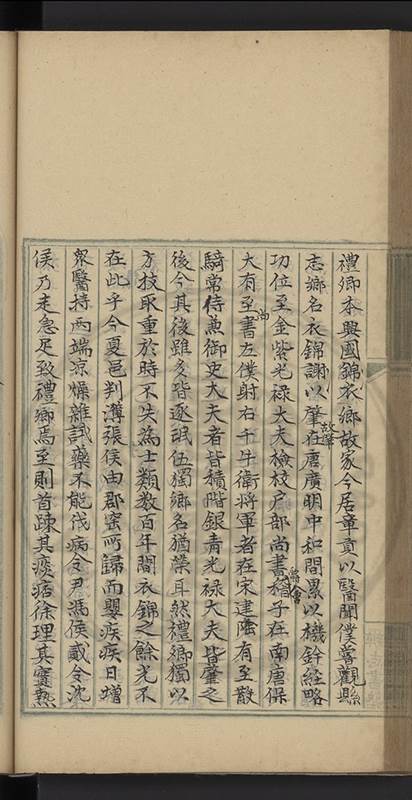 禮卿本興國錦衣鄉故家今居章貢以醫聞僕嘗觀縣
志鄉名衣錦謝以肇在唐廣明中和間累以機鈐經略
故肇
功位至金紫光祿大夫檢校戶部尚書稽子在南唐保
大有至書左僕射右千牛衛將軍者在宋建隆有至散
尚
騎常侍兼御史大夫者皆積階銀青光祿大夫皆肇之
後今其後雖多皆逐氓伍獨鄉名猶葉耳然禮卿獨以
方技取重於時不失為士類數百年間衣錦之餘光不
在此乎今夏邑判簿張侯由郡寀所歸而嬰疾疾日增
眾醫持兩端涼燥雜試藥不能伐病令尹馮侯貳令沈
侯乃走急足致禮卿焉至則首疎其痰痞徐理其實熱